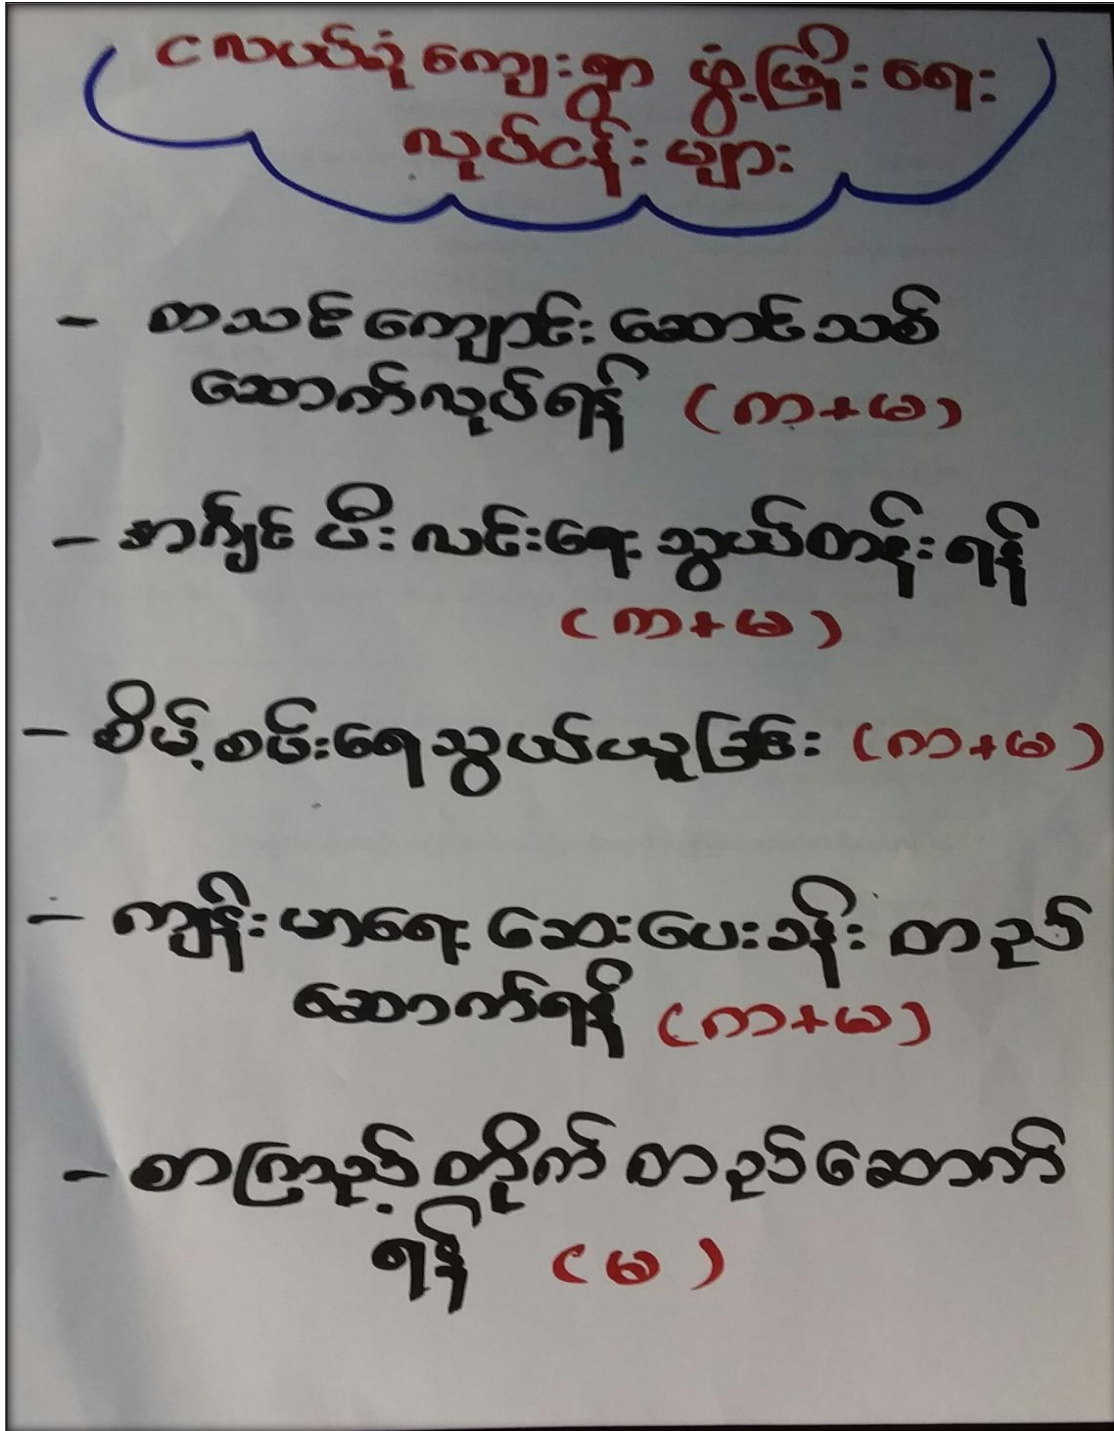 ငလပပ်လုံကျေးရွာ ဖွံ့ဖြိုးရေး
လုပ်ငန်းများ
- စာသင်ကျောင်းဆောင်သစ်
ဆောက်လုပ်ရန် (ကာ+မ)
- အကျင် မီးလင်းရေး သွယ်တန်းရန်
(ကာ+မ)
- စိမ့်စမ်းရေသွယ်ယူခြင်း (ကာ+မ)
- ကျန်းမာရေး ဆေးပေးခန်း တည်
ဆောက်ရန် (ကာ+မ)
- စာကြည့်တိုက် တည်ဆောက်
ရန် (မ)